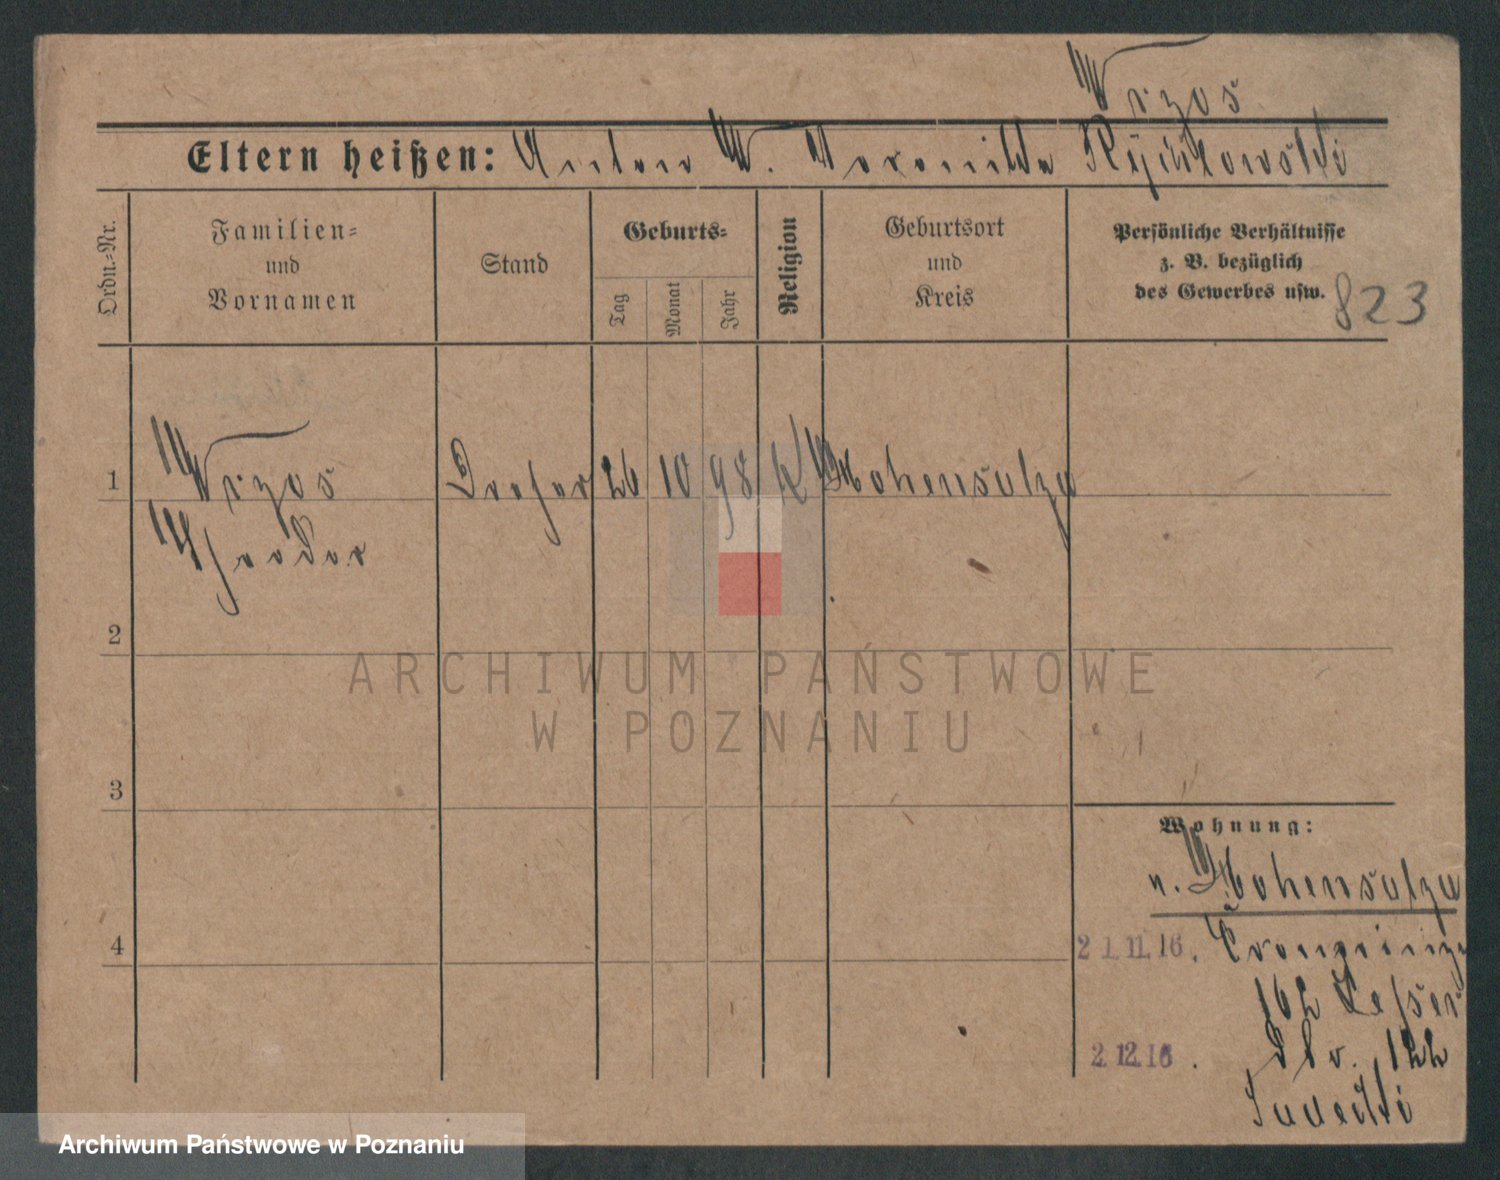 Wrzos
Eltern heißen: Anton W. Veronika Rychlowski
Ordn.-Nr.
Familien-
und
Vornamen
Stand
Geburts-
Tag
Monat
Jahr
Religion
Geburtsort
und
Kreis
Persönliche Verhältnisse
z. B. bezüglich
des Gewerbes usw.
823
1 Wrzos Dreher 26 10 98 K Hohensalza
Theodor
2
3
4
ARCHIWUM PAŃSTWOWE
W POZNANIU
Wohnung:
v. Hohensalza
21.11.16. Kronprinz
162 Lesser
2.12.16. 122
Archiwum Państwowe w Poznaniu